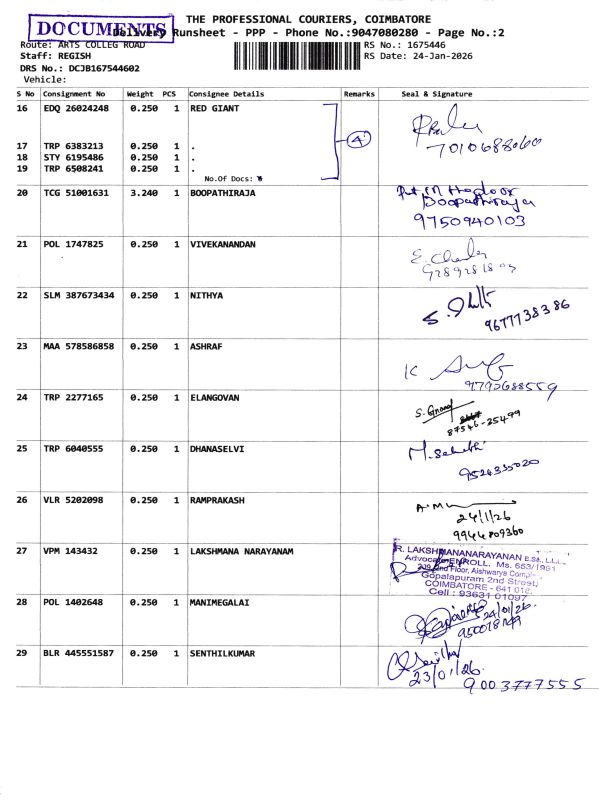 DOCUMENTS
THE PROFESSIONAL COURIERS, COIMBATORE
Delivery Runsheet - PPP - Phone No.:9047080280 - Page No.:2
Route: ARTS COLLEG ROAD
RS No.: 1675446
Staff: REGISH
RS Date: 24-Jan-2026
DRS No.: DCJB167544602
Vehicle:
S No Consignment No Weight PCS Consignee Details Remarks Seal & Signature
16 EDQ 26024248 0.250 1 RED GIANT
17 TRP 6383213 0.250 1 . 4 7010688060
18 STY 6195486 0.250 1 .
19 TRP 6508241 0.250 1 .
No.Of Docs:
20 TCG 51001631 3.240 1 BOOPATHIRAJA
Boopathiraja
9750940103
21 POL 1747825 0.250 1 VIVEKANANDAN
22 SLM 387673434 0.250 1 NITHYA
9677738386
23 MAA 578586858 0.250 1 ASHRAF
9790688559
24 TRP 2277165 0.250 1 ELANGOVAN
87546-25499
25 TRP 6040555 0.250 1 DHANASELVI
9524335020
26 VLR 5202098 0.250 1 RAMPRAKASH
24/1/26
9944809360
27 VPM 143432 0.250 1 LAKSHMANA NARAYANAM
R. LAKSHMANANARAYANAN B.Sc., LL.L.,
Advocate ENROLL. Ms. 653/1991
209 2nd Floor, Aishwarya Complex,
Gopalapuram 2nd Street,
COIMBATORE - 641 018.
Cell : 93631 01097
28 POL 1402648 0.250 1 MANIMEGALAI
24/01/26.
29 BLR 445551587 0.250 1 SENTHILKUMAR
23/01/26.
9003777555